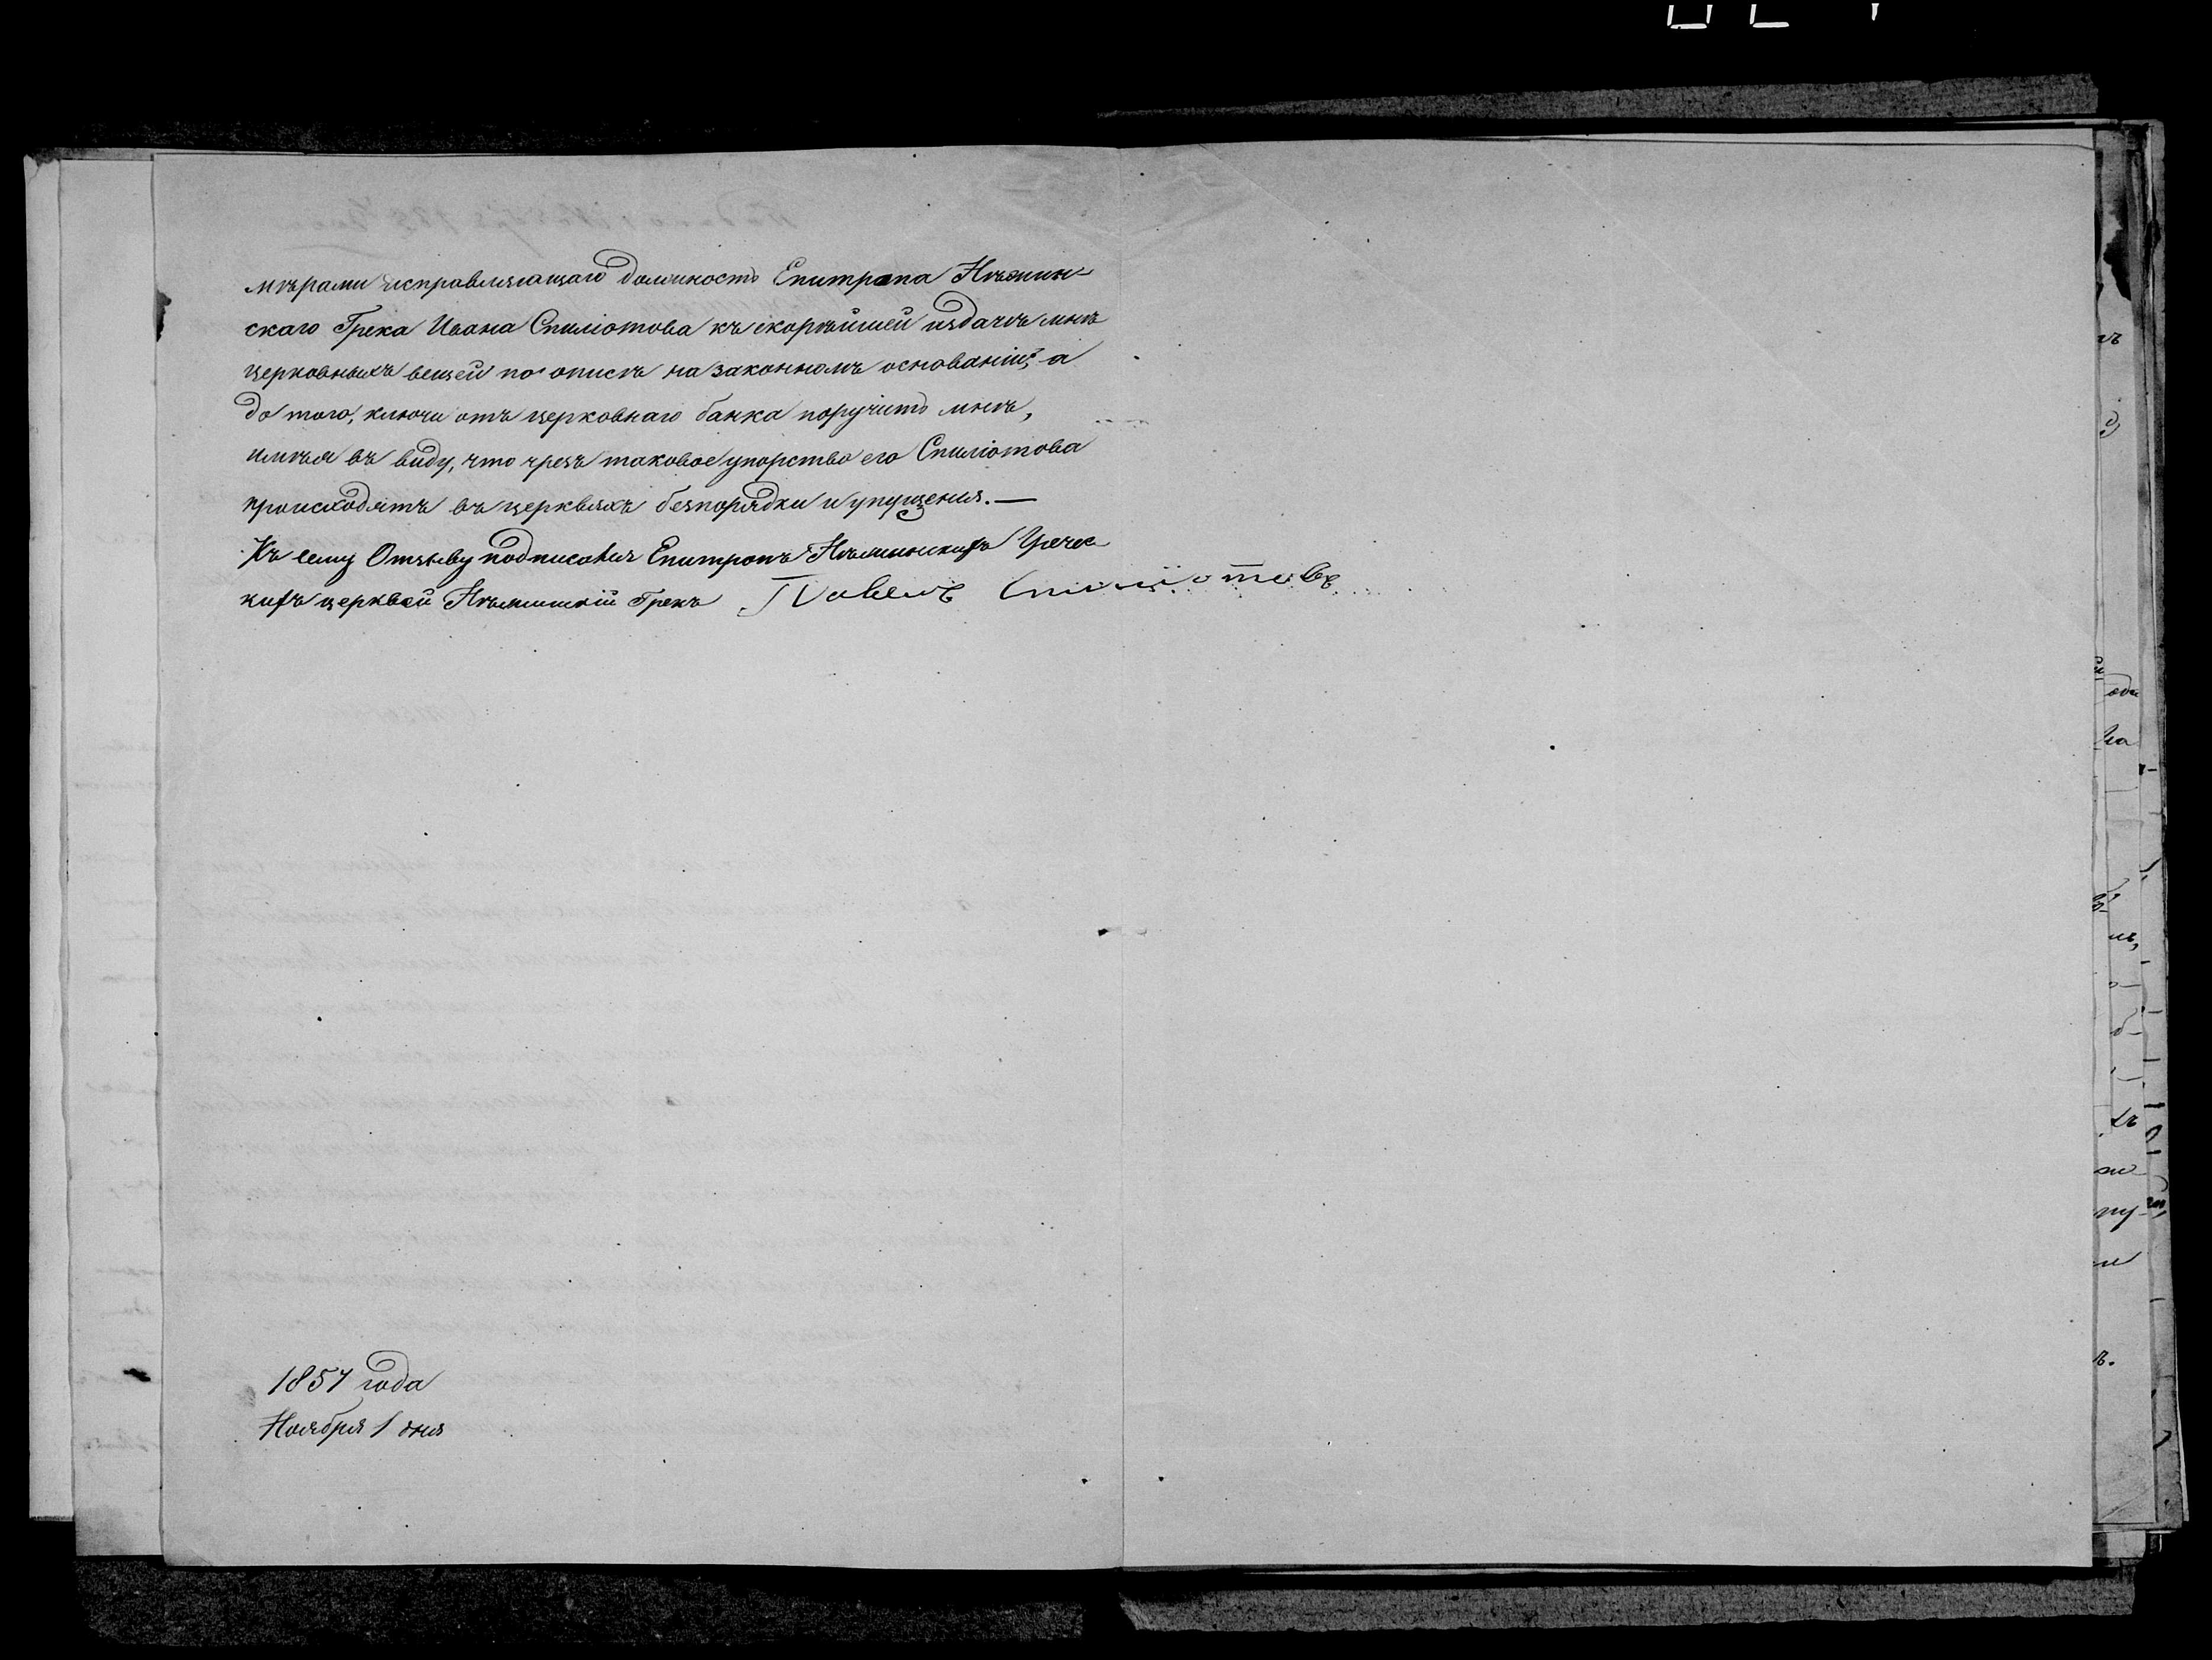 мѣрами исправляющаго должность Епитропа Нѣжин-
скаго Грека Ивана Спиліотова къ скорѣйшей издачѣ мнѣ
церковныхъ вещей по описѣ на законномъ основаніи; а
до того, ключи отъ церковнаго банка поручить мнѣ,
имѣя въ виду, что чрезъ таковое упорство его Спиліотова
происходятъ въ церквяхъ безпорядки и упущения.—
Къ сему Отзыву подписался Епитропъ Нѣжинскихъ Гречес
кихъ церквей Нѣжинскій Грекъ Павелъ Спиліотовъ
1857 года
Ноября 1 дня